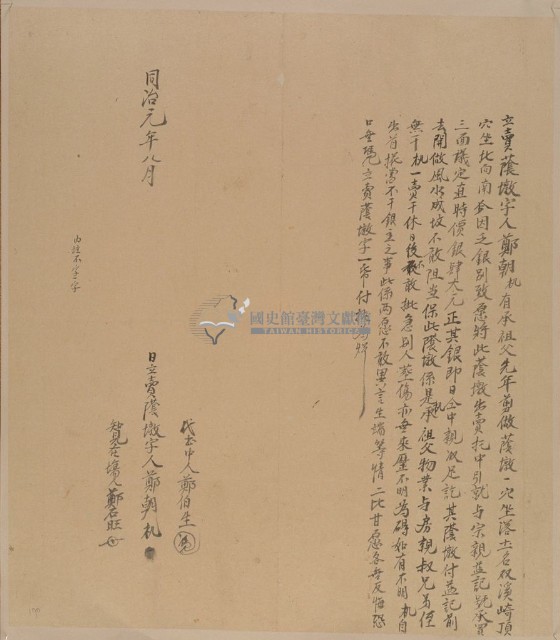 立賣蔭墩字人鄭朝机有承祖父先年剪做蔭墩一穴坐落土名双溪崎頂
穴坐北向南今因乏銀別致愿將此蔭墩出賣托中引就与宗親益記號承買
三面議定直時價銀肆大元正其銀即日仝中親收足訖其蔭墩付益記前
去開做風水成坟不敢阻当保此蔭墩係是机承祖父物業与房親叔兄弟侄
無干机一賣千休日後不敢敢批急別人塟傷亦無來歷不明為碍如有不明机自
出首抵當不干銀主之事此係兩愿不敢異言生端等情二比甘愿各無反悔恐
口無憑立賣蔭墩字一帋付執為炤
同治元年八月
內註不字字
代書中人鄭伯生
日立賣蔭墩字人鄭朝机
知見在塲人鄭石旺
國史館臺灣文獻館
TAIWAN HISTORICA